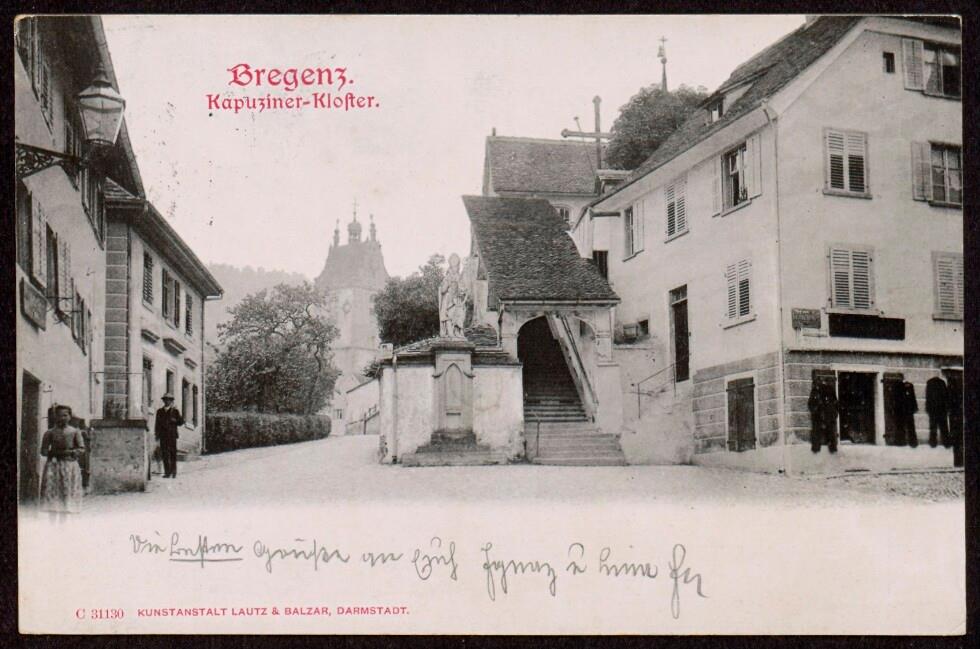 Bregenz.
Kapuziner-Kloster.
Die besten Grüße an Euch Ignaz u Lina
C 31130 KUNSTANSTALT LAUTZ & BALZAR, DARMSTADT.